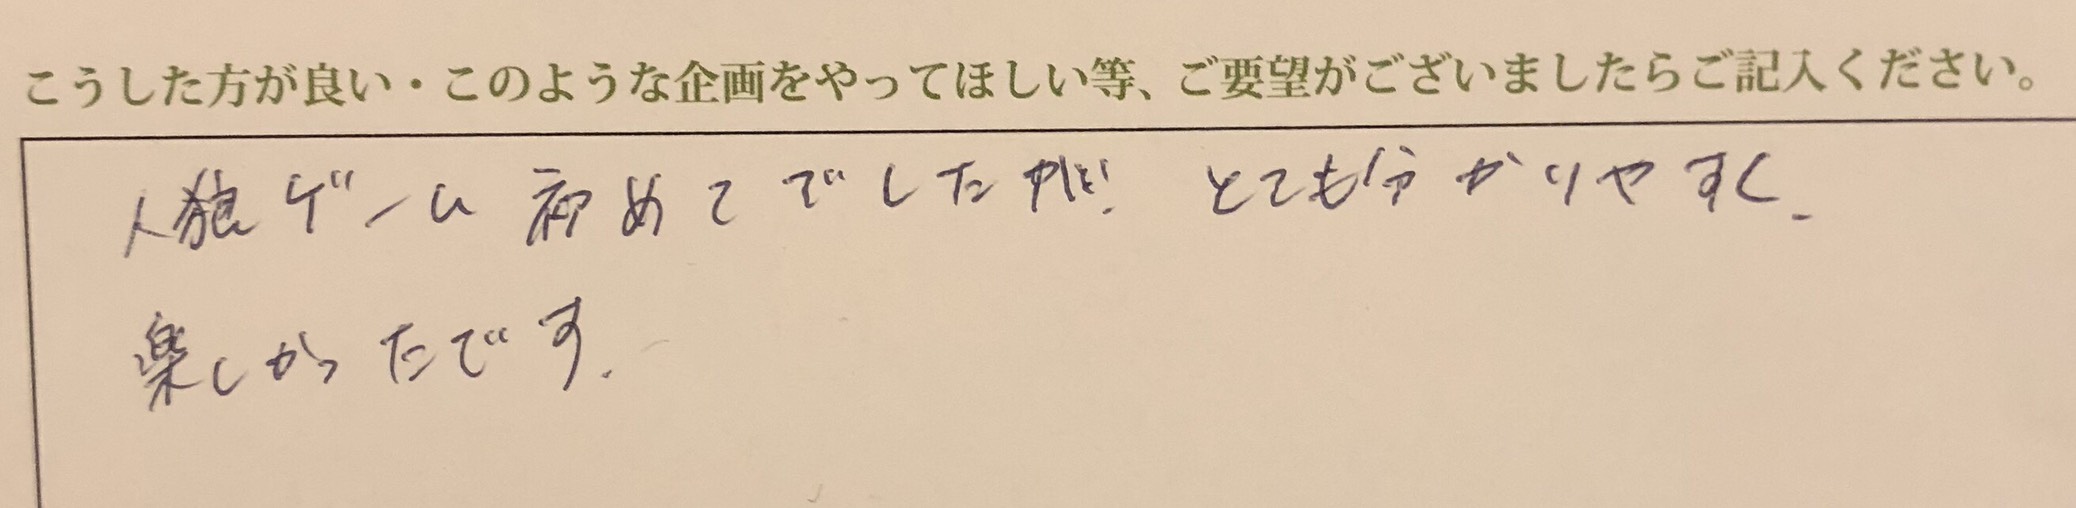 こうした方が良い・このような企画をやってほしい等、ご要望がございましたらご記入ください。
人狼ゲーム初めてでしたが! とても分かりやすく、
楽しかったです。